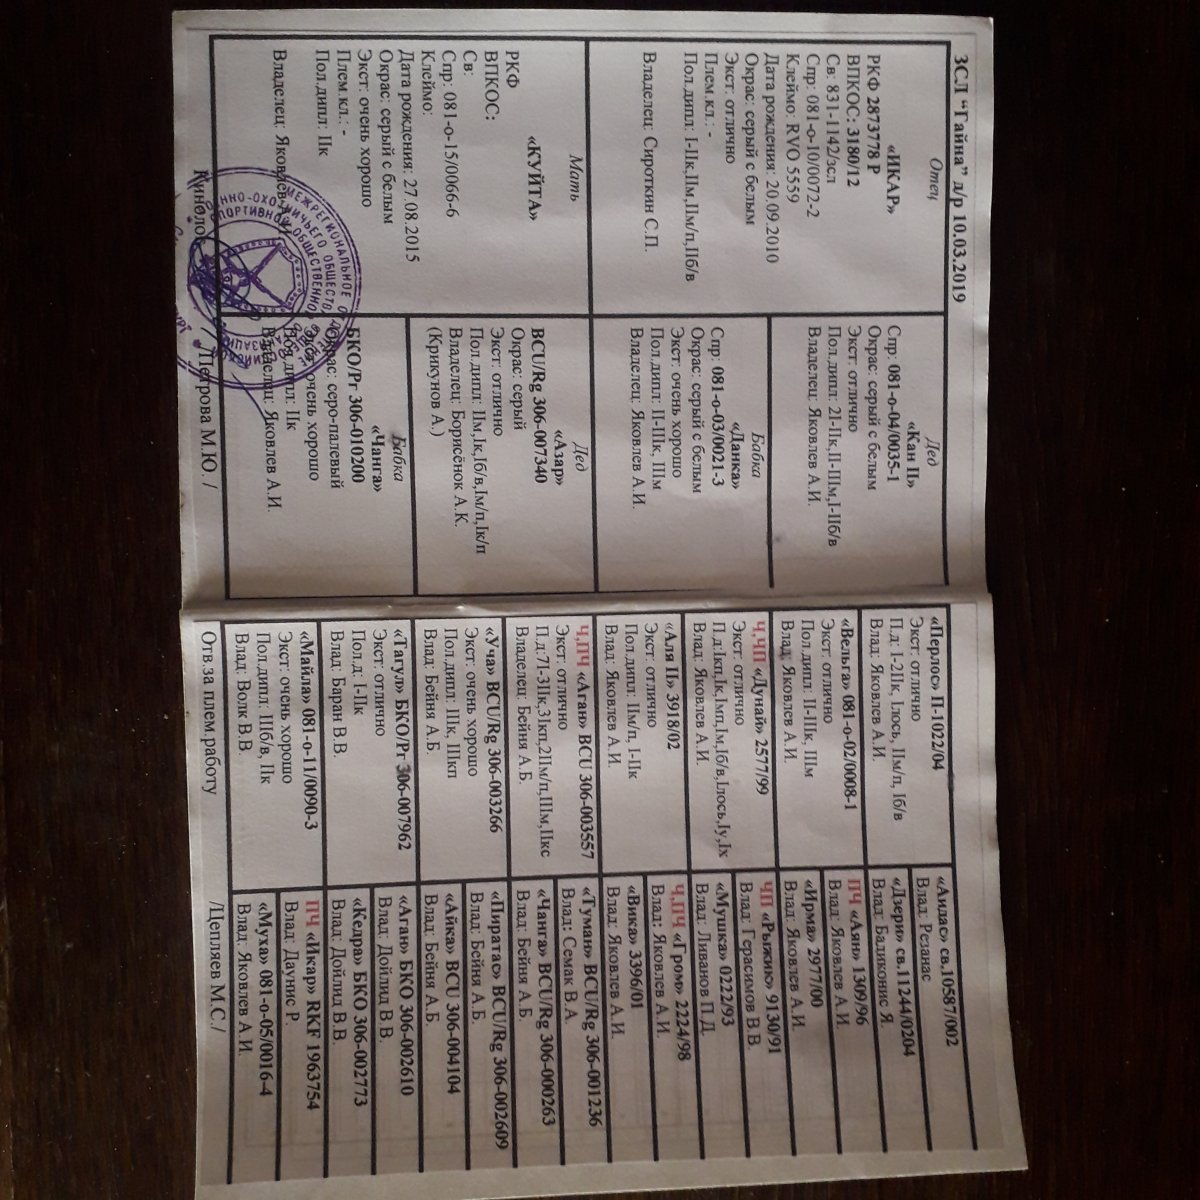 ЗСЛ “Гайна” д/р 10.03.2019
Отец
«ИКАР»
РКФ 2873778 Р
ВПКОС: 3180/12
Св: 831-1142/зсл
Спр: 081-о-10/0072-2
Клеймо: RVO 5559
Дата рождения: 20.09.2010
Окрас: серый с белым
Экст: отлично
Плем.кл.: -
Пол.дипл: I-IIк,IIм,IIм/п,IIб/в
Владелец: Сироткин С.П.
Мать
«КУЙТА»
РКФ
ВПКОС:
Св:
Спр: 081-о-15/0066-6
Клеймо:
Дата рождения: 27.08.2015
Окрас: серый с белым
Экст: очень хорошо
Плем.кл.: -
Пол.дипл: IIк
Владелец: Яковлев
Дед
«Кан II»
Спр: 081-о-04/0035-1
Окрас: серый с белым
Экст: отлично
Пол.дипл: 2I-IIк,II-IIIм,I-IIб/в
Владелец: Яковлев А.И.
Бабка
«Данка»
Спр: 081-о-03/0021-3
Окрас: серый с белым
Экст: очень хорошо
Пол.дипл: II-IIIк, IIIм
Владелец: Яковлев А.И.
Дед
«Азар»
BCU/Rg 306-007340
Окрас: серый
Экст: отлично
Пол.дипл: IIм,Iк,Iб/в,Iм/п,Iк/п
Владелец: Борисёнок А.К.
(Крикунов А.)
Бабка
«Чанга»
БКО/Рг 306-010200
Окрас: серо-палевый
Экст: очень хорошо
Пол.дипл: IIк
Владелец: Яковлев А.И.
«Перлос» П-1022/04
Экст: отлично
П.д: I-2IIк, Iлось, IIм/п, Iб/в
Влад: Яковлев А.И.
«Вельга» 081-о-02/0008-1
Экст: отлично
Пол.дипл: II-IIIк, IIIм
Влад: Яковлев А.И.
Ч,ЧП «Дунай» 2577/99
Экст: отлично
П.д:Iкп,Iк,Iмп,Iм,Iб/в,Iлось,Iу,Iх
Влад: Яковлев А.И.
«Аля II» 3918/02
Экст: отлично
Пол.дипл: IIм/п, I-IIк
Влад: Яковлев А.И.
Ч,ПЧ «Аган» BCU 306-003557
Экст: отлично
П.д:7I-3IIк,3Iкп,2IIм/п,IIIм,IIкс
Владелец: Бейня А.Б.
«Уча» BCU/Rg 306-003266
Экст: очень хорошо
Пол.дипл: IIIк, IIIкп
Влад: Бейня А.Б.
«Тагул» БКО/Рг 306-007962
Экст: отлично
Пол.д: I-IIк
Влад: Баран В.В.
«Майла» 081-о-11/0090-3
Экст: очень хорошо
Пол.дипл: IIIб/в, IIк
Влад: Волк В.В.
«Аидас» св.10587/002
Влад: Резанас
«Дзери» св.11244/0204
Влад: Бадиконис Я.
ПЧ «Аян» 1309/96
Влад: Яковлев А.И.
«Ирма» 2977/00
Влад: Яковлев А.И.
ЧП «Рыжик» 9130/91
Влад: Герасимов В.В.
«Мушка» 0222/93
Влад: Ливанов П.Д.
Ч,ПЧ «Гром» 2224/98
Влад: Яковлев А.И.
«Вика» 3396/01
Влад: Яковлев А.И.
«Туман» BCU/Rg 306-001236
Влад: Семак В.А.
«Чанга» BCU/Rg 306-000263
Влад: Бейня А.Б.
«Пиратас» BCU/Rg 306-002609
Влад: Бейня А.Б.
«Айка» BCU 306-004104
Влад: Бейня А.Б.
«Аган» БКО 306-002610
Влад: Дойлид В.В.
«Кедра» БКО 306-002773
Влад: Дойлид В.В.
ПЧ «Икар» RKF 1963754
Влад: Даунис Р.
«Муха» 081-о-05/0016-4
Влад: Яковлев А.И.
Кинолог /Петрова М.Ю. /
Отв.за плем.работу /Цепляев М.С./